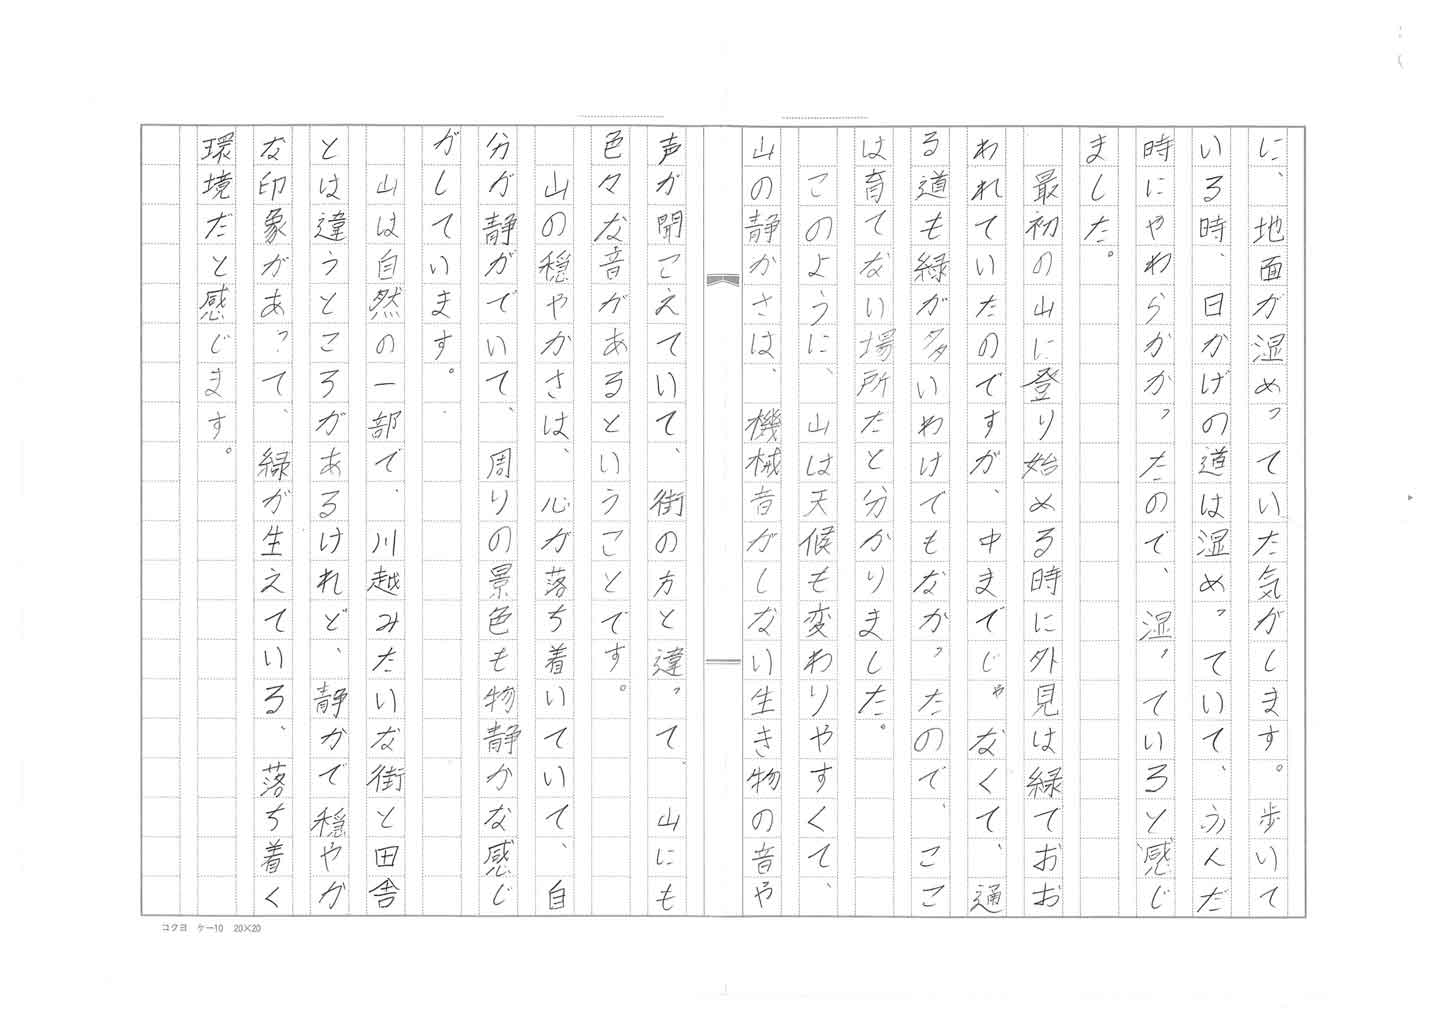 に、地面が湿めっていた気がします。歩いて
いる時、日かげの道は湿めっていて、ふんだ
時にやわらかかったので、湿っていると感じ
ました。
最初の山に登り始める時に外見は緑でおお
われていたのですが、中までじゃなくて、通
る道も緑が多いわけでもなかったので、ここ
は育てない場所だと分かりました。
このように、山は天候も変わりやすくて、
山の静かさは、機械音がしない生き物の音や
声が聞こえていて、街の方と違って、山にも
色々な音があるということです。
山の穏やかさは、心が落ち着いていて、自
分が静がでいて、周りの景色も物静かな感じ
がしています。
山は自然の一部で、川越みたいな街と田舎
とは違うところがあるけれど、静かで穏やか
な印象があって、緑が生えている、落ち着く
環境だと感じます。
コクヨ ケー10 20×20